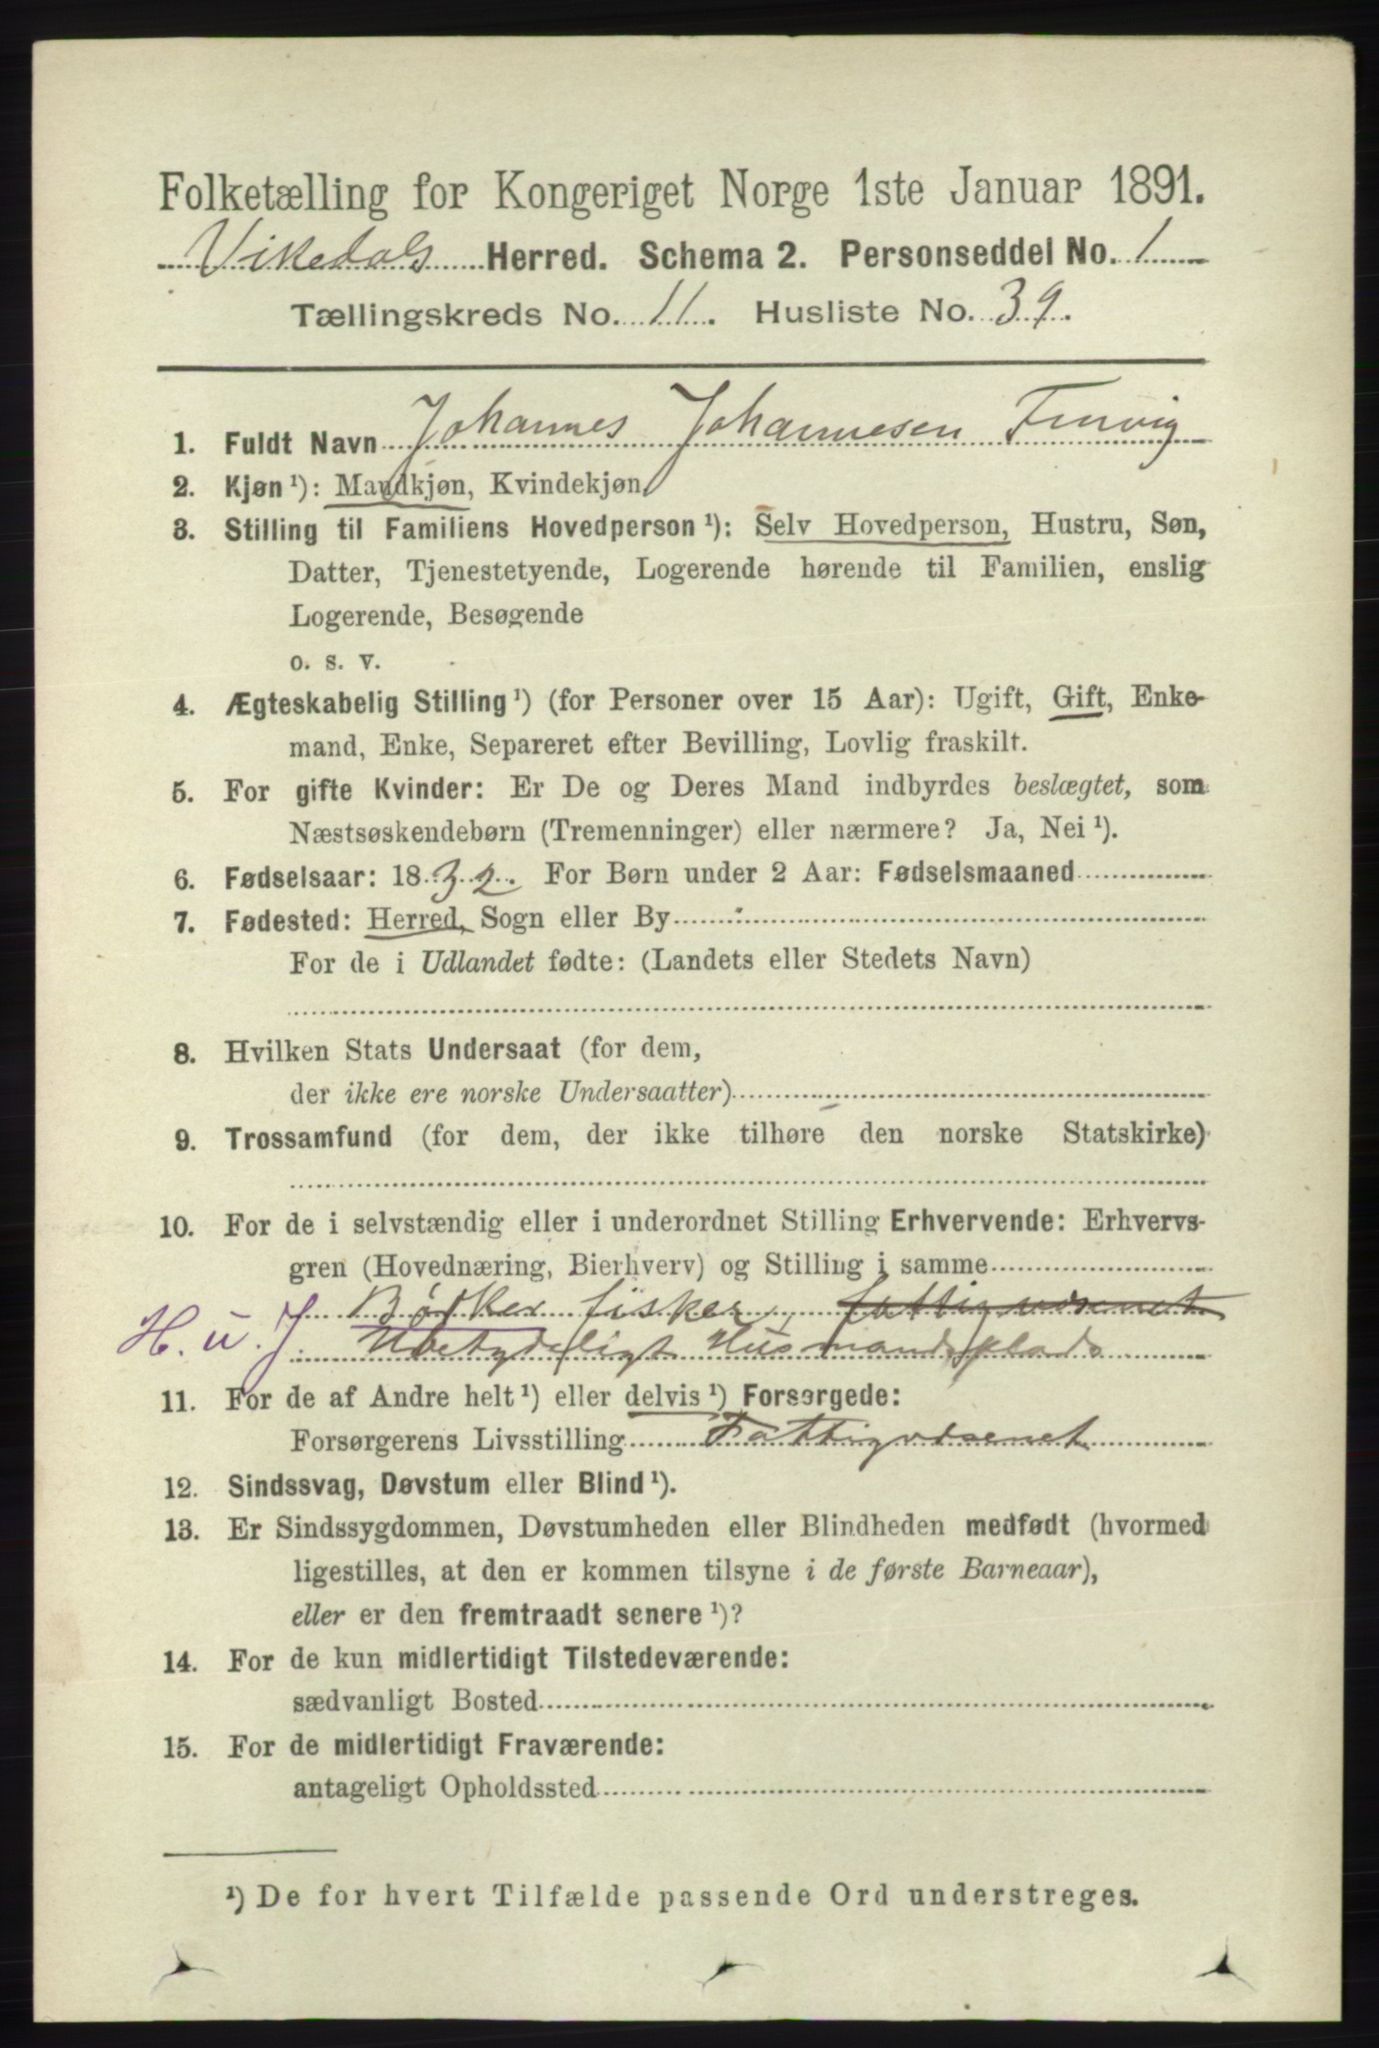 Folketælling for Kongeriget Norge 1ste Januar 1891.
Vikedals Herred. Schema 2. Personseddel No. 1
Tællingskreds No. 11. Husliste No. 39.
1. Fuldt Navn Johannes Johannesen
2. Kjøn ¹): Mandkjøn, Kvindekjøn.
3. Stilling til Familiens Hovedperson ¹): Selv Hovedperson, Hustru, Søn,
Datter, Tjenestetyende, Logerende hørende til Familien, enslig
Logerende, Besøgende
o. s. v.
4. Ægteskabelig Stilling ¹) (for Personer over 15 Aar): Ugift, Gift, Enke-
mand, Enke, Separeret efter Bevilling, Lovlig fraskilt.
5. For gifte Kvinder: Er De og Deres Mand indbyrdes beslægtet, som
Næstsøskendebørn (Tremenninger) eller nærmere? Ja, Nei ¹).
6. Fødselsaar: 1832. For Børn under 2 Aar: Fødselsmaaned
7. Fødested: Herred, Sogn eller By
For de i Udlandet fødte: (Landets eller Stedets Navn)
8. Hvilken Stats Undersaat (for dem,
der ikke ere norske Undersaatter)
9. Trossamfund (for dem, der ikke tilhøre den norske Statskirke)
10. For de i selvstændig eller i underordnet Stilling Erhvervende: Erhvervs-
gren (Hovednæring, Bierhverv) og Stilling i samme
Bødker fisker, fattigvæsenet
H. u. J. Ubetydeligt Husmandsplads
11. For de af Andre helt ¹) eller delvis ¹) Forsørgede:
Forsørgerens Livsstilling Fattigvæsenet
12. Sindssvag, Døvstum eller Blind ¹).
13. Er Sindssygdommen, Døvstumheden eller Blindheden medfødt (hvormed
ligestilles, at den er kommen tilsyne i de første Barneaar),
eller er den fremtraadt senere ¹)?
14. For de kun midlertidigt Tilstedeværende:
sædvanligt Bosted
15. For de midlertidigt Fraværende:
antageligt Opholdssted
¹) De for hvert Tilfælde passende Ord understreges.